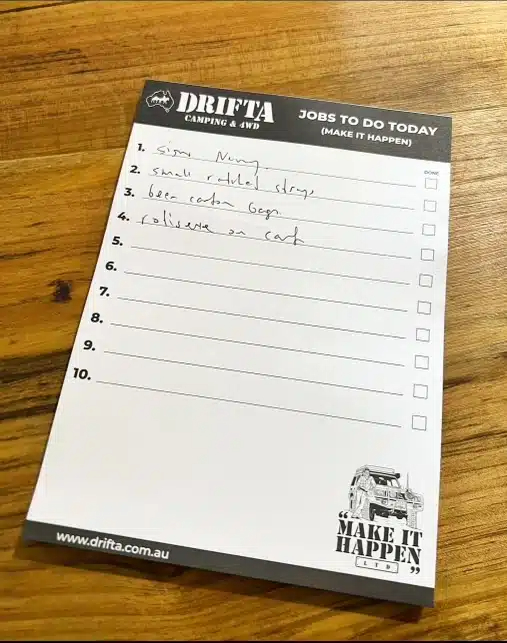 DRIFTA
CAMPING & 4WD
JOBS TO DO TODAY
(MAKE IT HAPPEN)
DONE
1. signs
2. small ratchet straps
3. beer carton bags
4. on cart
5.
6.
7.
8.
9.
10.
"MAKE IT
HAPPEN"
LTD
www.drifta.com.au